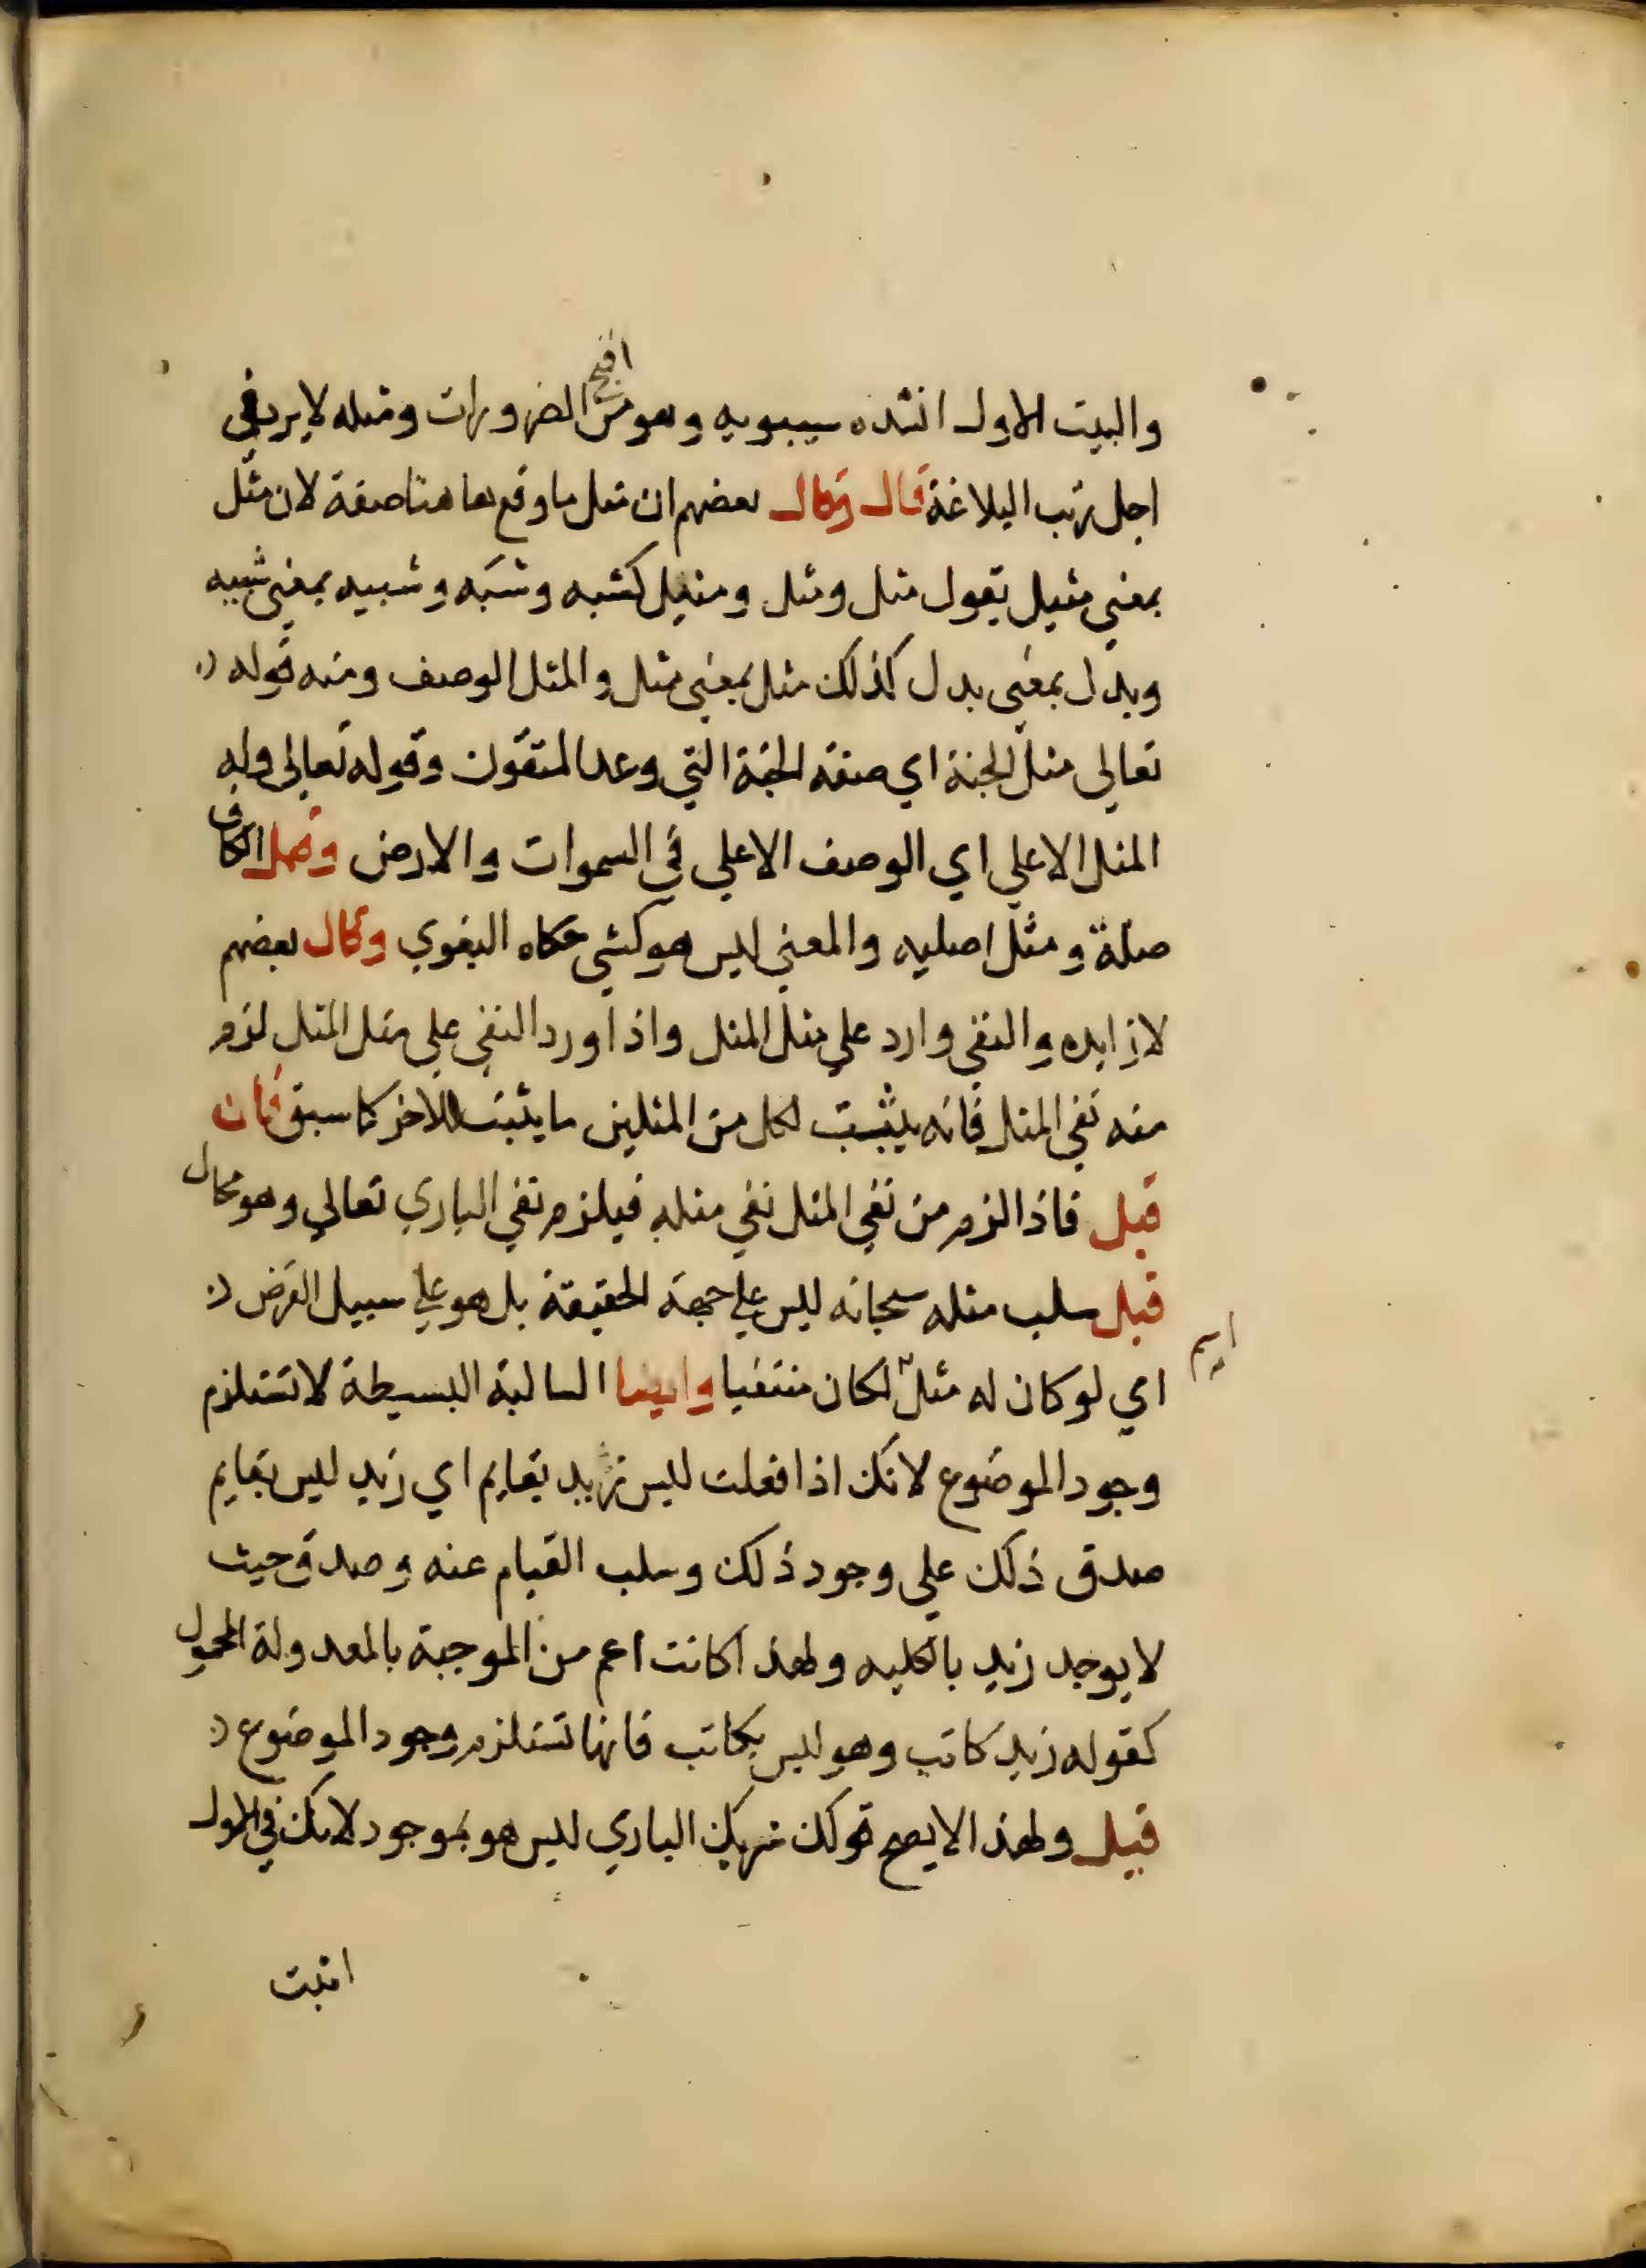 اقبح
والبيت الاول انشده سيبويه وهو من الضرورات ومثله لا يرد في
اجل رتب البلاغة قال وقال بعضهم ان مثل ما وقع هاهنا صفة لان مثل
بمعني مثيل تقول مثل ومثل ومثيل كشبه وشبه وشبيه بمعني شبيه
وبدل بمعني بدل كذلك مثل بمعني مثل والمثل الوصف ومنه قوله
تعالي مثل الجنة اي صفة الجنة التي وعد المتقون وقوله تعالي وله
المثل الاعلي اي الوصف الاعلي في السموات والارض وقيل الكاف
صلة ومثل اصليه والمعني ليس هو كشي حكاه البغوي وقال بعضهم
لا زايده والنفي وارد علي مثل المثل واذا ورد النفي علي مثل المثل لزم
منه نفي المثل فانه يثبت لكل من المثلين ما يثبت للاخر كما سبق فان
قيل فاذا لزم من نفي المثل نفي مثله فيلزم نفي الباري تعالي وهو محال
قيل سلب مثله سبحانه ليس علي جهة الحقيقة بل هو علي سبيل الفرض
اي لو كان له مثل لكان منتفيا وايضا السالبة البسيطة لا تستلزم
وجود الموضوع لانك اذا قلت ليس زيد بقايم اي زيد ليس بقايم
صدق ذلك علي وجود ذلك وسلب القيام عنه وصدق حيث
لا يوجد زيد بالكليه ولهذا كانت اعم من الموجبة بالمعدولة المحمول
كقوله زيد كاتب وهو ليس بكاتب فانها تستلزم وجود الموضوع
قيل ولهذا لا يصح قولك شريك الباري ليس هو بموجود لانك في الاول
اثبت